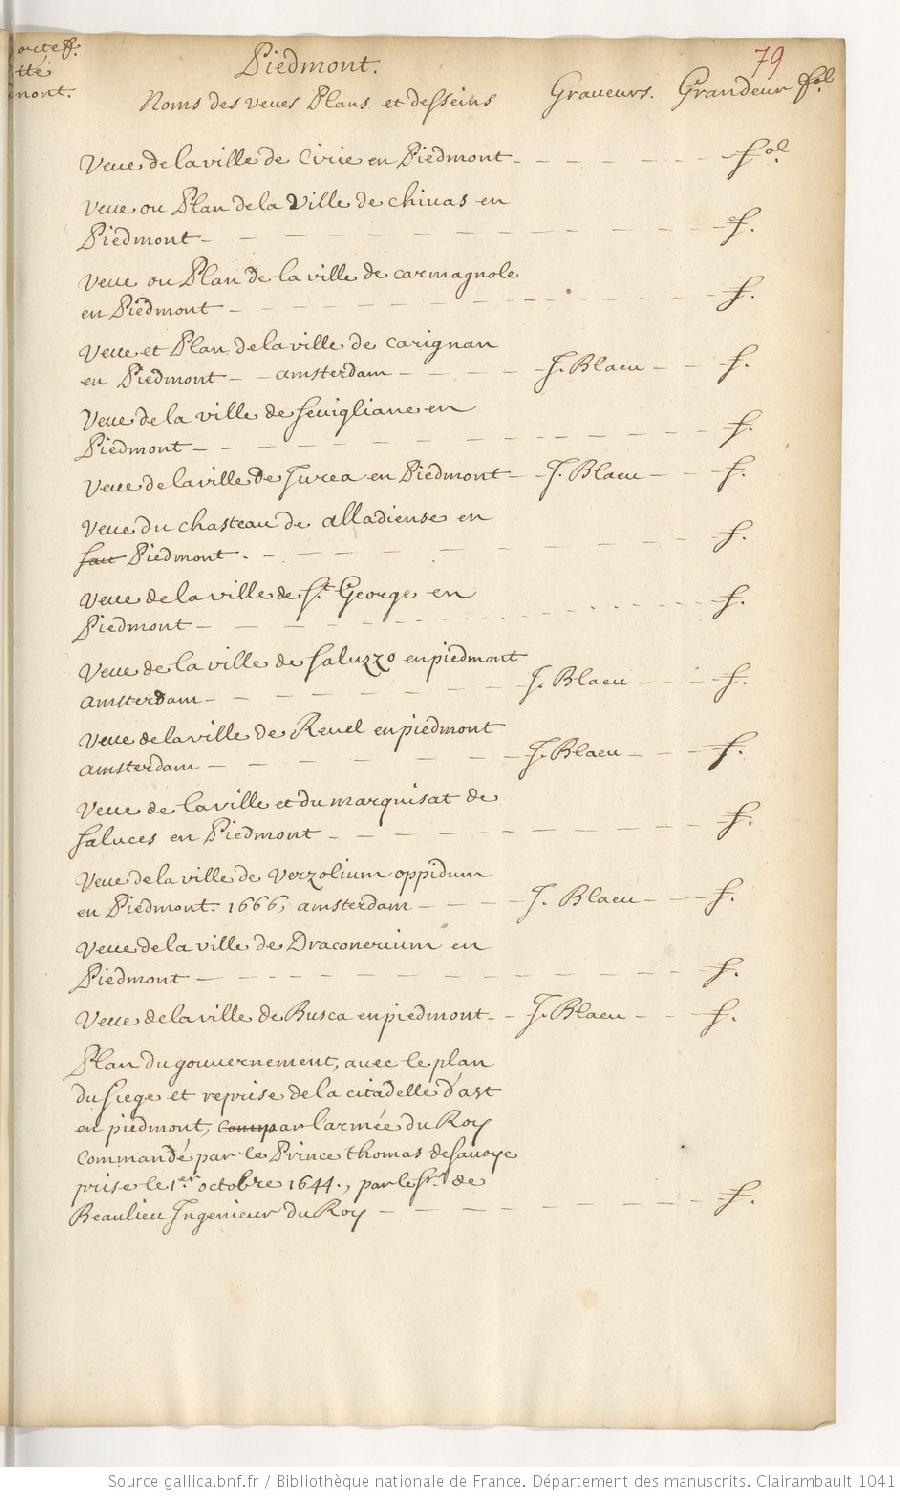 Piedmont.
79
Noms des veues Plans et desseins Graveurs. Grandeur fol.
Veue de la ville de Cirie en Piedmont fol.
Veue ou Plan de la Ville de chivas en
Piedmont f.
Veue ou Plan de la ville de carmagnole
en Piedmont f.
Veue et Plan de la ville de Carignan
en Piedmont amsterdam J. Blaeu f.
Veue de la ville de Sevigliane en
Piedmont f.
Veue de la ville de Jurea en Piedmont J. Blaeu f.
Veue du chasteau de alladiense en
Piedmont. f.
Veue de la ville de St. George en
Piedmont f.
Veue de la ville de Saluzzo en piedmont
amsterdam J. Blaeu f.
Veue de la ville de Revel en piedmont
amsterdam J. Blaeu f.
Veue de la ville et du marquisat de
Saluces en Piedmont f.
Veue de la ville de Verzolium oppidum
en Piedmont. 1666, amsterdam J. Blaeu f.
Veue de la ville de Draconerium en
Piedmont f.
Veue de la ville de Busca en piedmont J. Blaeu f.
Plan du gouvernement, avec le plan
du siege et reprise de la citadelle d'ast
en piedmont, par l'armée du Roy
commandé par le Prince thomas de savoye
prise le 1er. octobre 1644., par le Sr. de
Beaulieu Ingenieur du Roy f.
Source gallica.bnf.fr / Bibliothèque nationale de France. Département des manuscrits. Clairambault 1041